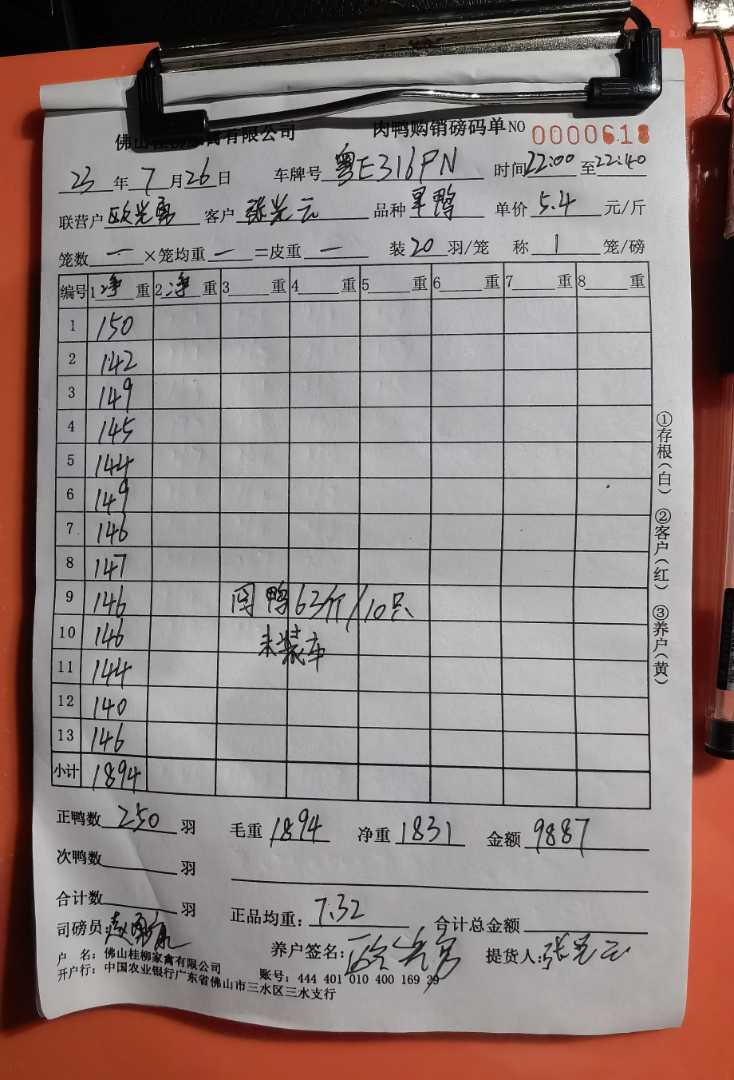 佛山桂柳家禽有限公司 肉鸭购销磅码单 NO 0000618
23 年 7 月 26 日 车牌号 粤E316PN 时间 22:00 至 22:40
联营户 欧光勇 客户 张光云 品种 旱鸭 单价 5.4 元/斤
笼数 一 ×笼均重 一 =皮重 一 装 20 羽/笼 称 1 笼/磅
编号 1 净 重 2 净 重 3 重 4 重 5 重 6 重 7 重 8 重
1 150
2 142
3 149
4 145
5 144
6 149
7 146
8 147
9 146 鸭63斤/10只
10 146 未装车
11 144
12 140
13 146
小计 1894
①存根(白) ②客户(红) ③养户(黄)
正鸭数 250 羽 毛重 1894 净重 1831 金额 9887
次鸭数 羽
合计数 羽 正品均重: 7.32 合计总金额
司磅员: 养户签名: 欧光勇 提货人: 张光云
户 名: 佛山桂柳家禽有限公司 账号: 444 401 010 400 169 29
开户行: 中国农业银行广东省佛山市三水区三水支行